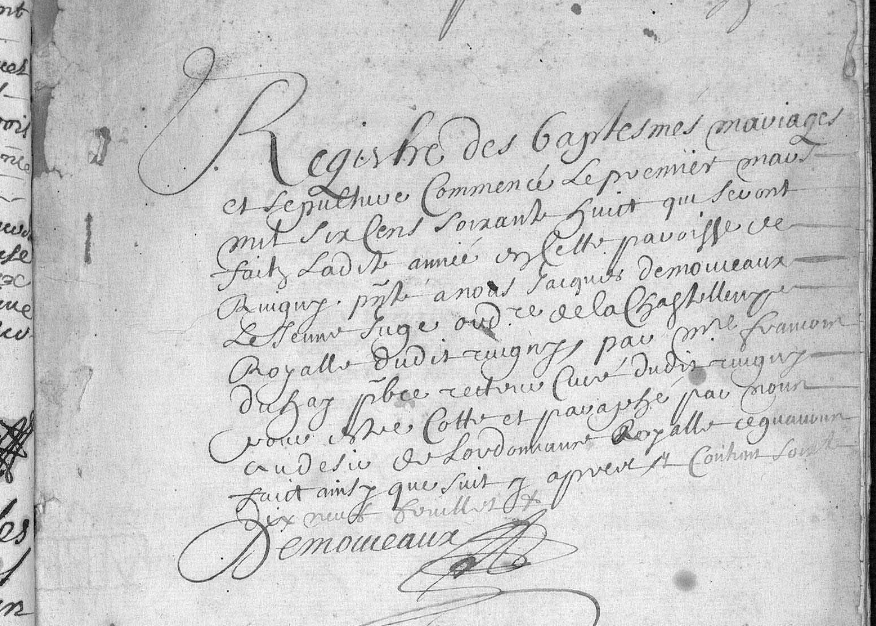 Registre des baptesmes mariages
et sepulture Commencé Le premier mars
mil six Cens soixante huict qui seront
faitz Ladite année en Cette paroisse de
pnté a nous Jacques demouceaux
Le Jeune Juge ord.re de la Chastellenye
Royalle dudit par Mre francois
pbre recteur Curé dudit
pour estre Cotte et paraphé par nous
au desir de Lordonnance Royalle ce quavons
faict ainsy que suit cy apres et Contient
dix neuf feuillet
Demouceaux